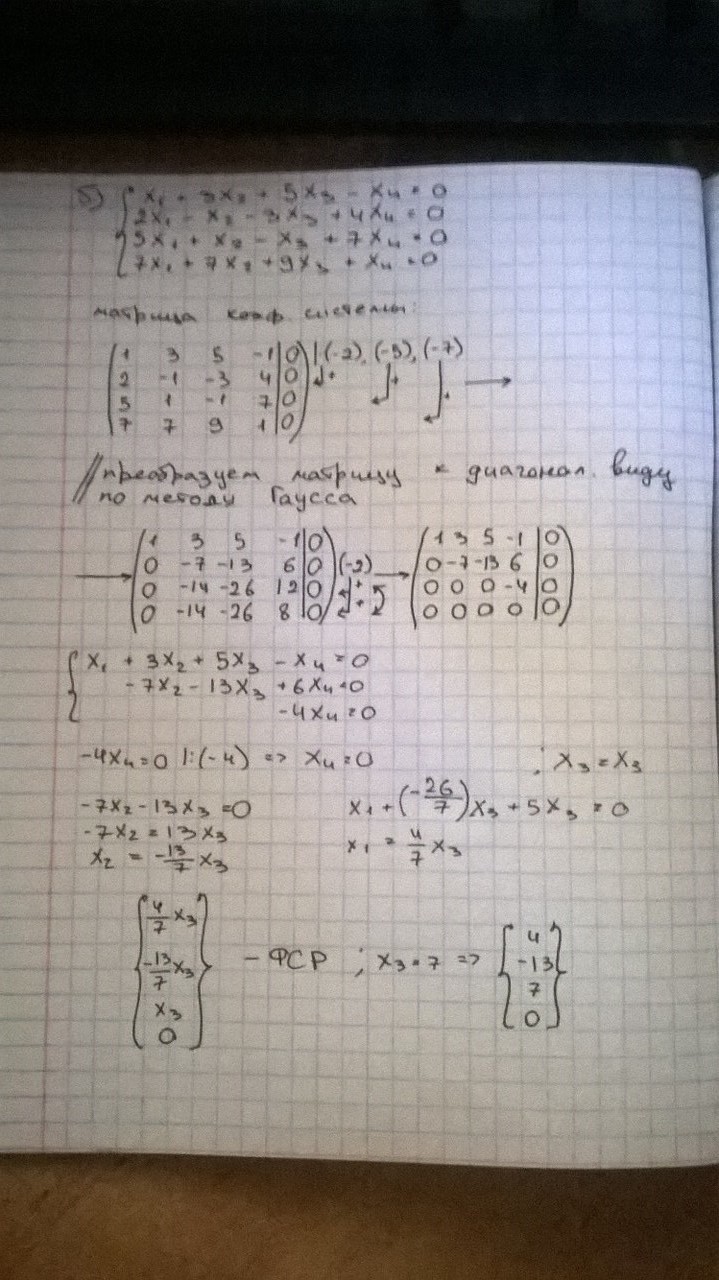 б) { x₁ + 3x₂ + 5x₃ - x₄ = 0
2x₁ - x₂ - 3x₃ + 4x₄ = 0
5x₁ + x₂ - x₃ + 7x₄ = 0
7x₁ + 7x₂ + 9x₃ + x₄ = 0
матрица коэф. системы:
( 1 3 5 -1 | 0 ) |·(-2), (-5), (-7)
2 -1 -3 4 | 0
5 1 -1 7 | 0
7 7 9 1 | 0 →
// преобразуем матрицу к диагонал. виду
по методу Гаусса
→ ( 1 3 5 -1 | 0 ) → ( 1 3 5 -1 | 0 )
0 -7 -13 6 | 0 (-2) 0 -7 -13 6 | 0
0 -14 -26 12 | 0 0 0 0 -4 | 0
0 -14 -26 8 | 0 0 0 0 0 | 0
{ x₁ + 3x₂ + 5x₃ - x₄ = 0
-7x₂ - 13x₃ + 6x₄ = 0
-4x₄ = 0
-4x₄ = 0 |:(-4) => x₄ = 0 ; x₃ = x₃
-7x₂ - 13x₃ = 0 x₁ + (-26/7)x₃ + 5x₃ = 0
-7x₂ = 13x₃
x₂ = -13/7 x₃ x₁ = 4/7 x₃
{ 4/7 x₃
-13/7 x₃ } - ФСР ; x₃ = 7 => { 4
-13
x₃ 7
0 0 }